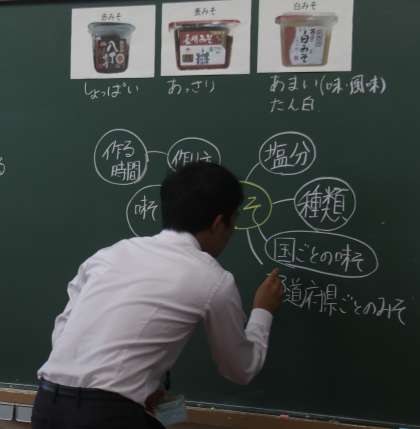 赤みそ
白みそ
八丁
白みそ
しょっぱい
あっさり
あまい(味・風味)
たん白
作る
時間
作り方
塩分
味そ
そ
種類
国ごとの味そ
道府県ごとのみそ
る